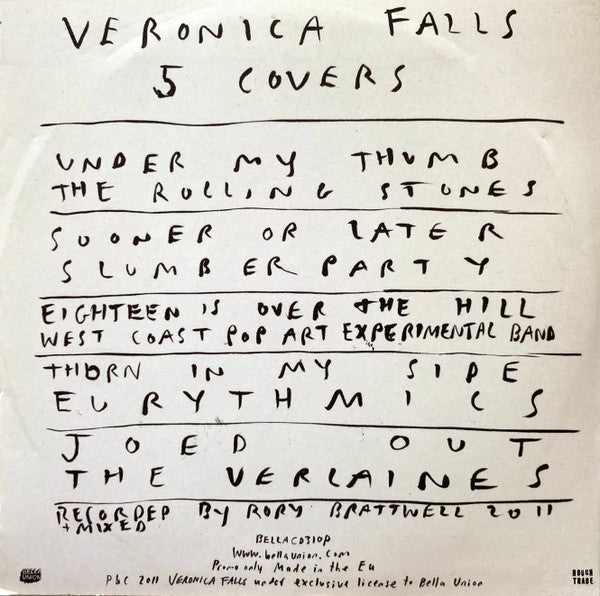 VERONICA FALLS
5 COVERS
UNDER MY THUMB
THE ROLLING STONES
SOONER OR LATER
SLUMBER PARTY
EIGHTEEN IS OVER THE HILL
WEST COAST POP ART EXPERIMENTAL BAND
THORN IN MY SIDE
EURYTHMICS
JOED OUT
THE VERLAINES
RECORDED BY RORY BRATTWELL 2011
+ MIXED
BELLACD310P
www.bellaunion.com
Promo only Made in the EU
P&C 2011 VERONICA FALLS under exclusive license to Bella Union
BELLA UNION
ROUGH TRADE